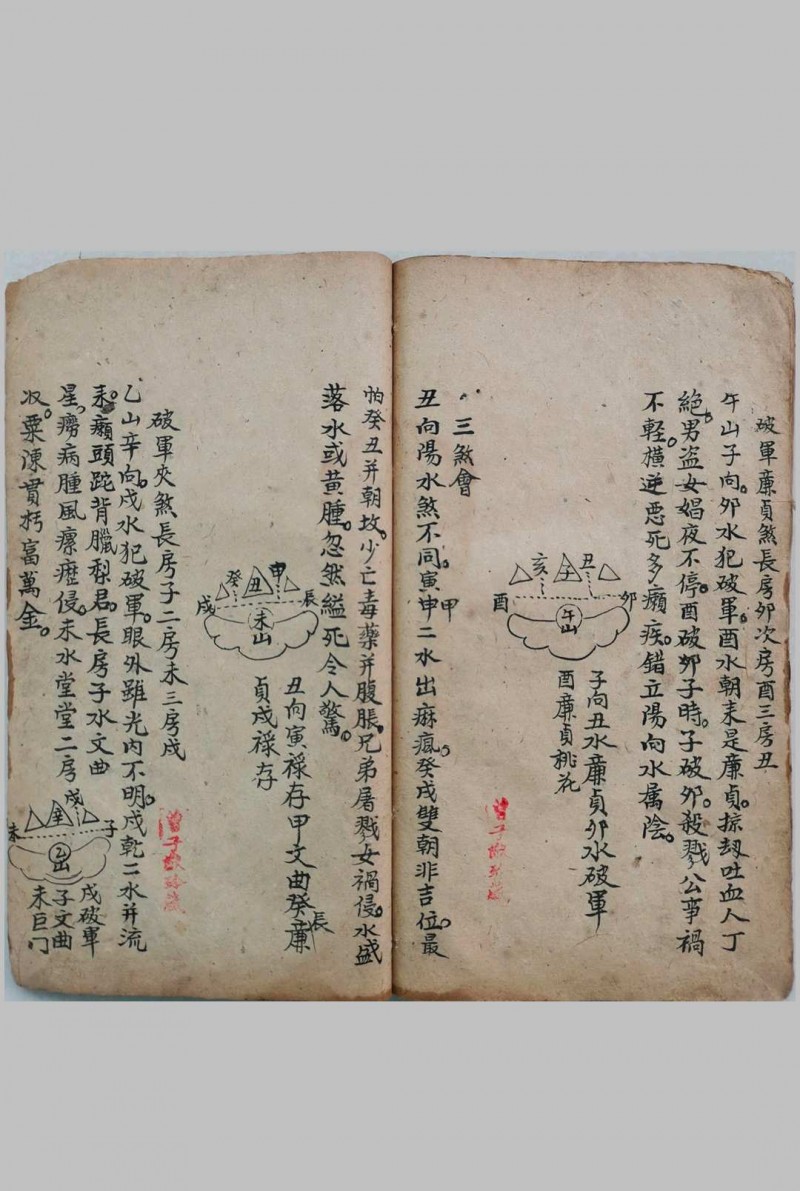 破軍廉貞煞長房卯次房酉三房丑
午山子向。卯水犯破軍。酉水朝来是廉貞。掠刼吐血人丁
絕。男盗女娼夜不停。酉破卯子時。子破卯。殺戮公事禍
不輕。橫逆惡死多癩疾。錯立陽向水属陰。
亥 壬 丑
酉 卯
午山
子向丑水廉貞卯水破軍
酉廉貞桃花
三煞會
丑向陽水煞不同。寅申甲二水出痳瘋。癸戌雙朝非吉位。最
怕癸丑并朝坟。少亡毒藥并腹脹。兄弟屠戮女禍侵。水盛
落水或黄腫。忽然縊死令人驚。
癸 丑 申
戌 辰
未山
丑向寅祿存甲文曲癸廉
辰
貞戌祿存
破軍夾煞長房子二房未三房戌
乙山辛向。戌水犯破軍。眼外雖光内不明。戌乾二水并流
来。癩頭跎背臘梨君。長房子水文曲
星。癆病腫風瘰癧侵。未水堂堂二房
収。粟陳貫朽富萬金。
戌
未 子
乙山
戌破軍
子文曲
未巨门